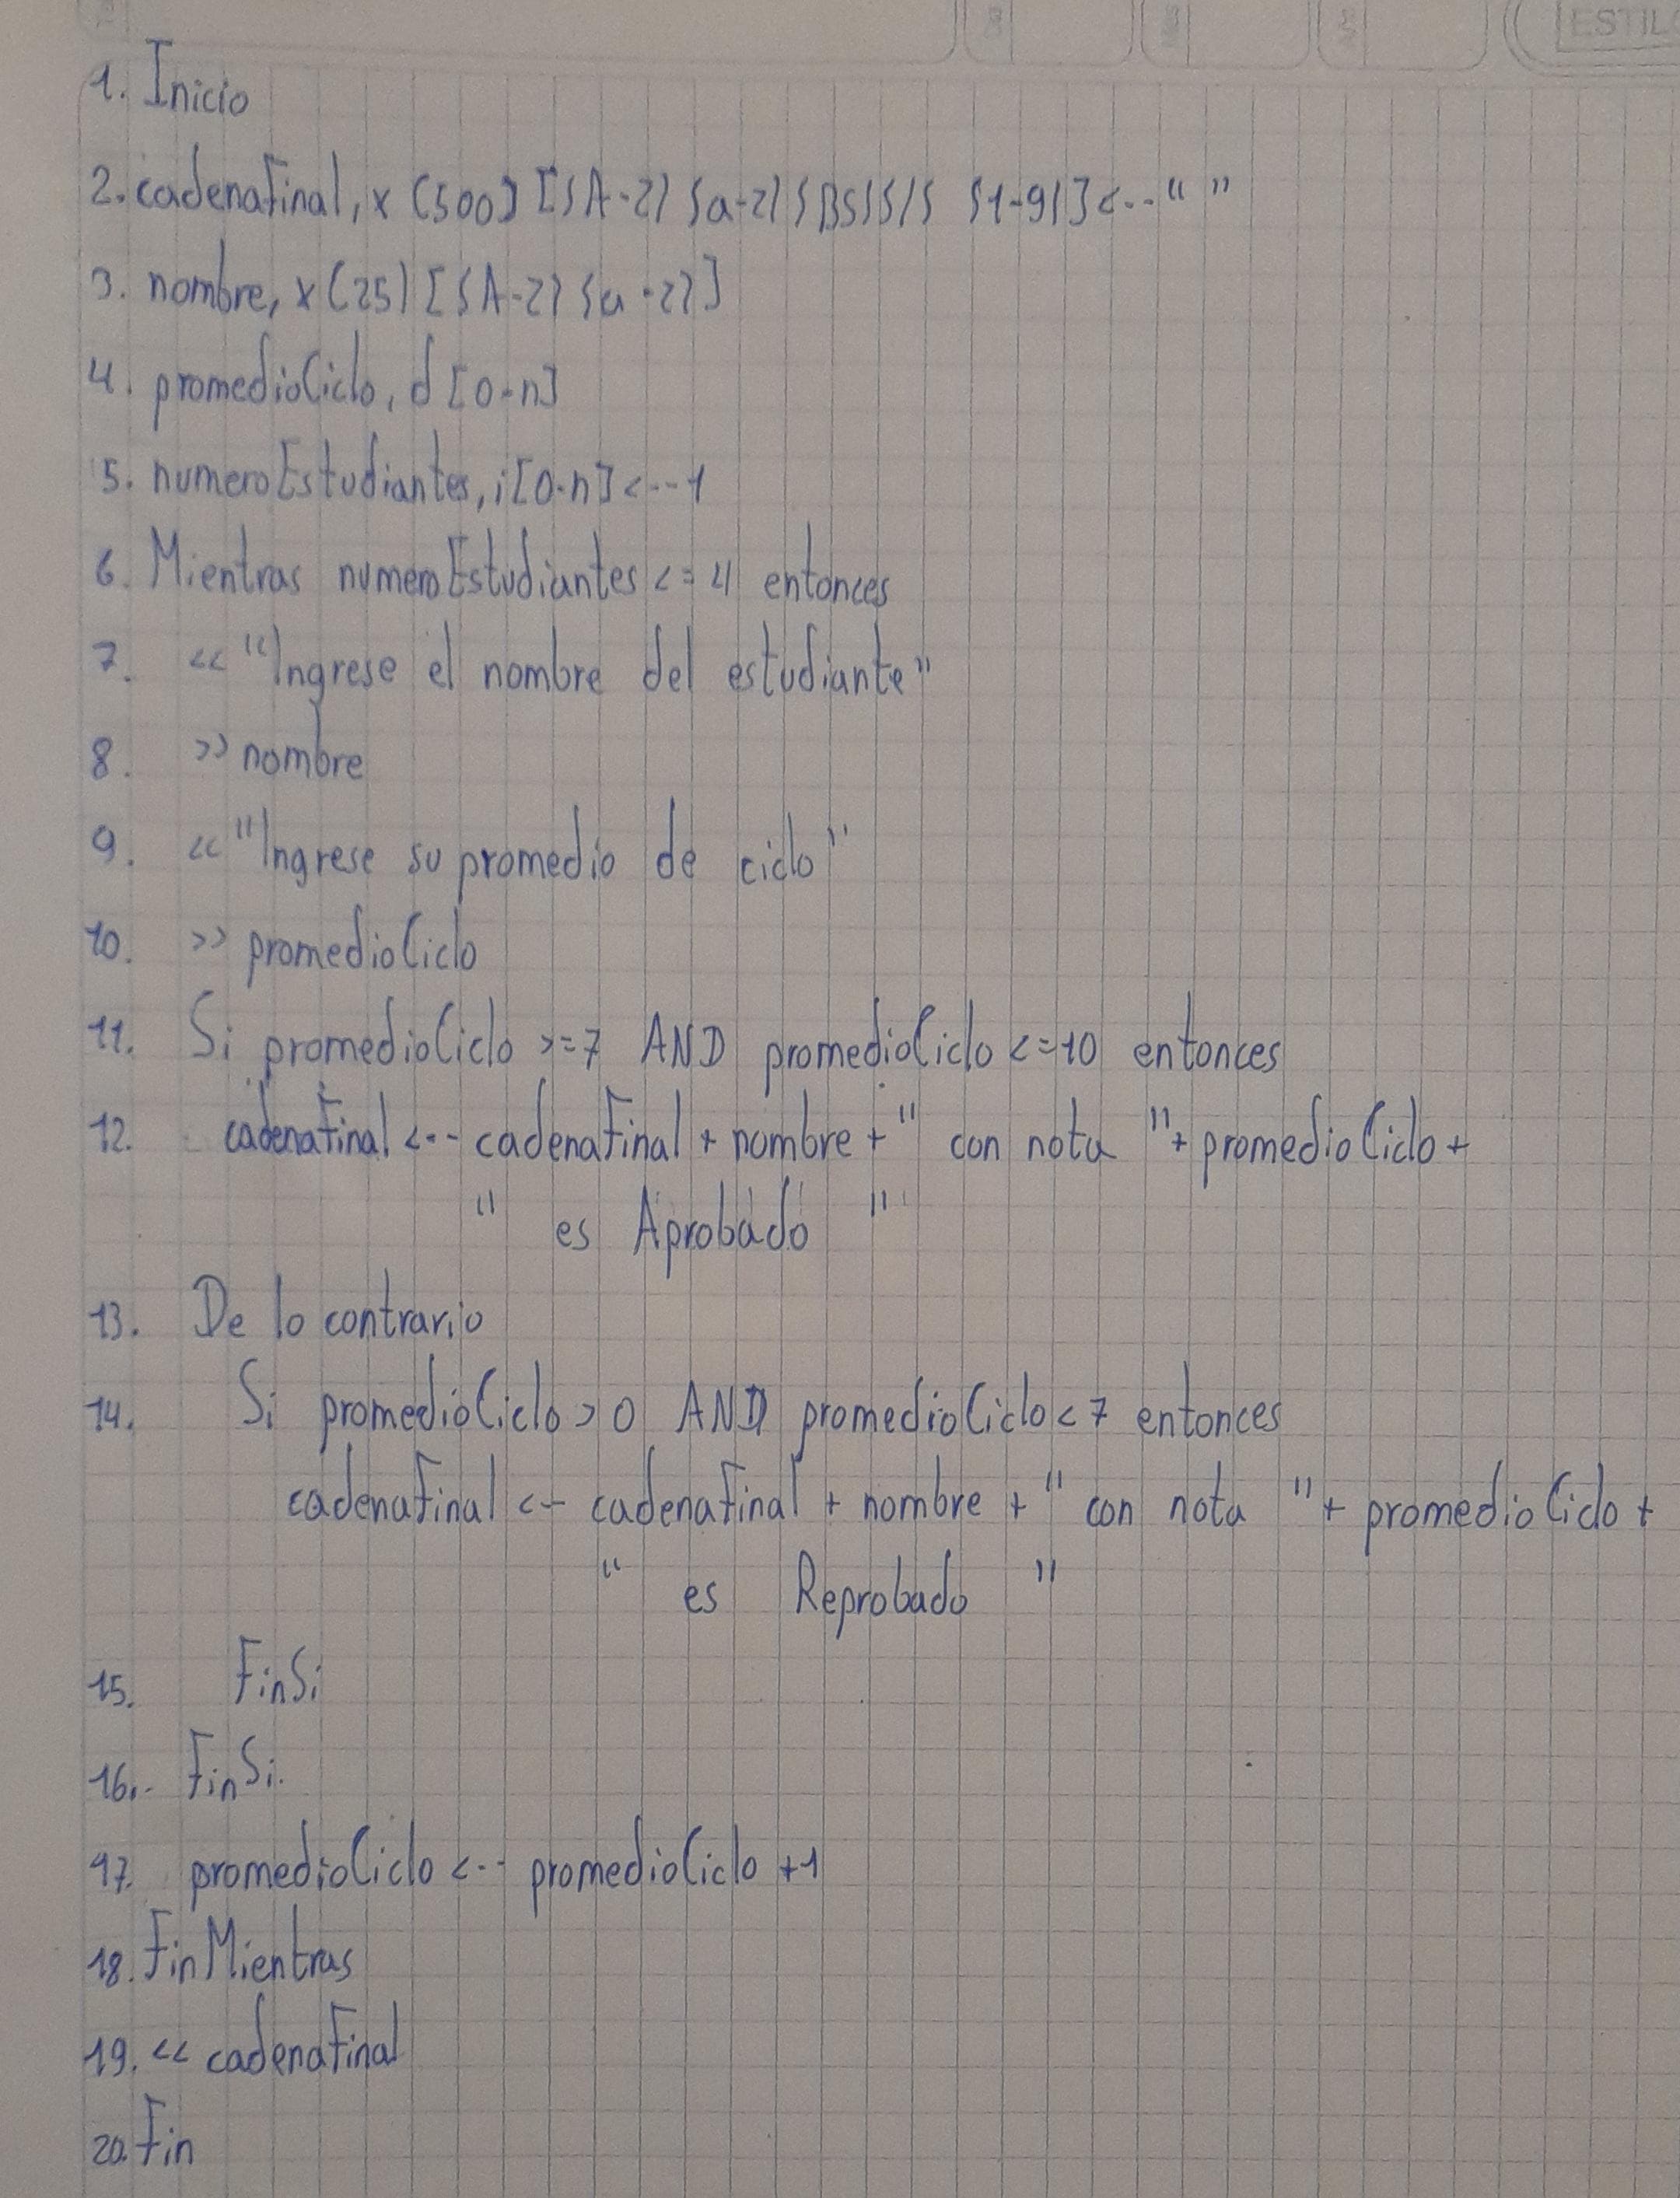 ESTIL
1. Inicio
2. cadenaFinal, x (500) [{A-Z} {a-z} {BS} {/} {1-9}] <-- " "
3. nombre, x (25) [{A-Z} {a-z}]
4. promedioCiclo, d [0-n]
5. numeroEstudiantes, i [0-n] <-- 1
6. Mientras numeroEstudiantes <= 4 entonces
7. << "Ingrese el nombre del estudiante"
8. >> nombre
9. << "Ingrese su promedio de ciclo"
10. >> promedioCiclo
11. Si promedioCiclo >= 7 AND promedioCiclo <= 10 entonces
12. cadenaFinal <-- cadenaFinal + nombre + " con nota " + promedioCiclo +
" es Aprobado "
13. De lo contrario
14. Si promedioCiclo > 0 AND promedioCiclo < 7 entonces
cadenaFinal <-- cadenaFinal + nombre + " con nota " + promedioCiclo +
" es Reprobado "
15. FinSi
16. FinSi.
17. promedioCiclo <-- promedioCiclo + 1
18. FinMientras
19. << cadenaFinal
20. Fin